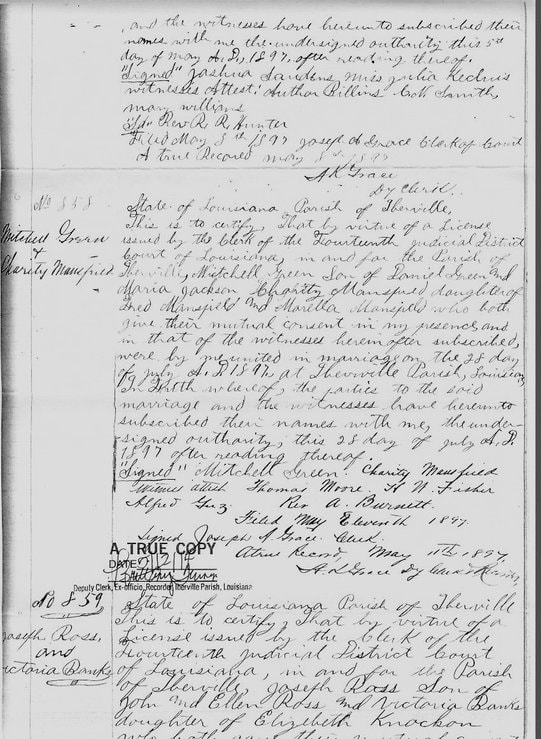 and the witnesses have hereunto subscribed their
names with me the undersigned outharity this 5th
day of may A. D. 1897, after reading thereof.
"Signed" Joshua Sanders, Miss Julia
witnesses Attest: Author Billins C W Smith,
mary williams
"Sd" Rev R. R. Hunter
Filed May 8th 1897 Joseph A Grace Clerk of Court
A true Record may 8th 1897
A K Grace
Dy Clerk
No 858
State of Louisiana Parish of Iberville,
Mitchell Green
+
Charity Mansfield
This is to certify, That by virtue of a License
issued by the Clerk of the Fourteenth Judicial District
Court of Louisiana, in and for the Parish of
Iberville, Mitchell Green Son of Daniel Green and
Maria Jackson Charity Mansfield daughter of
Fred Mansfield and Morella Mansfield who both
give their mutual consent in my presence, and
in that of the witnesses herein after subscribed,
were by me, united in marriage on the 28 day
of July A. D 1897, at Iberville Parish, Louisiana
In Faith whereof, the parties to the said
marriage and the witnesses have hereunto
subscribed their names with me, the under-
signed outharity, this 28 day of July A. D
1897 after reading thereof.
"Signed" Mitchell Green. Charity Mansfield
Witness attest Thomas Moore. H N. Fisher
Alfred Rev A. Burnett.
Filed May Eleventh 1897.
Signed Joseph A Grace. Clerk.
A true Record, May 11th 1897
A. K Grace Dy Clerk
A TRUE COPY
DATE
Deputy Clerk, Ex-officio, Recorder Iberville Parish, Louisiana
No 859
Joseph Ross,
and
Victoria Banks
State of Louisiana Parish of Iberville
This is to certify, That by virtue of a
License issued by the Clerk of the
Fourteenth Judicial District Court
of Louisiana, in and for the Parish
of Iberville, Joseph Ross Son of
John and Ellen Ross and Victoria Banks
daughter of Elizabeth Knockon
who both gave their mutual consent